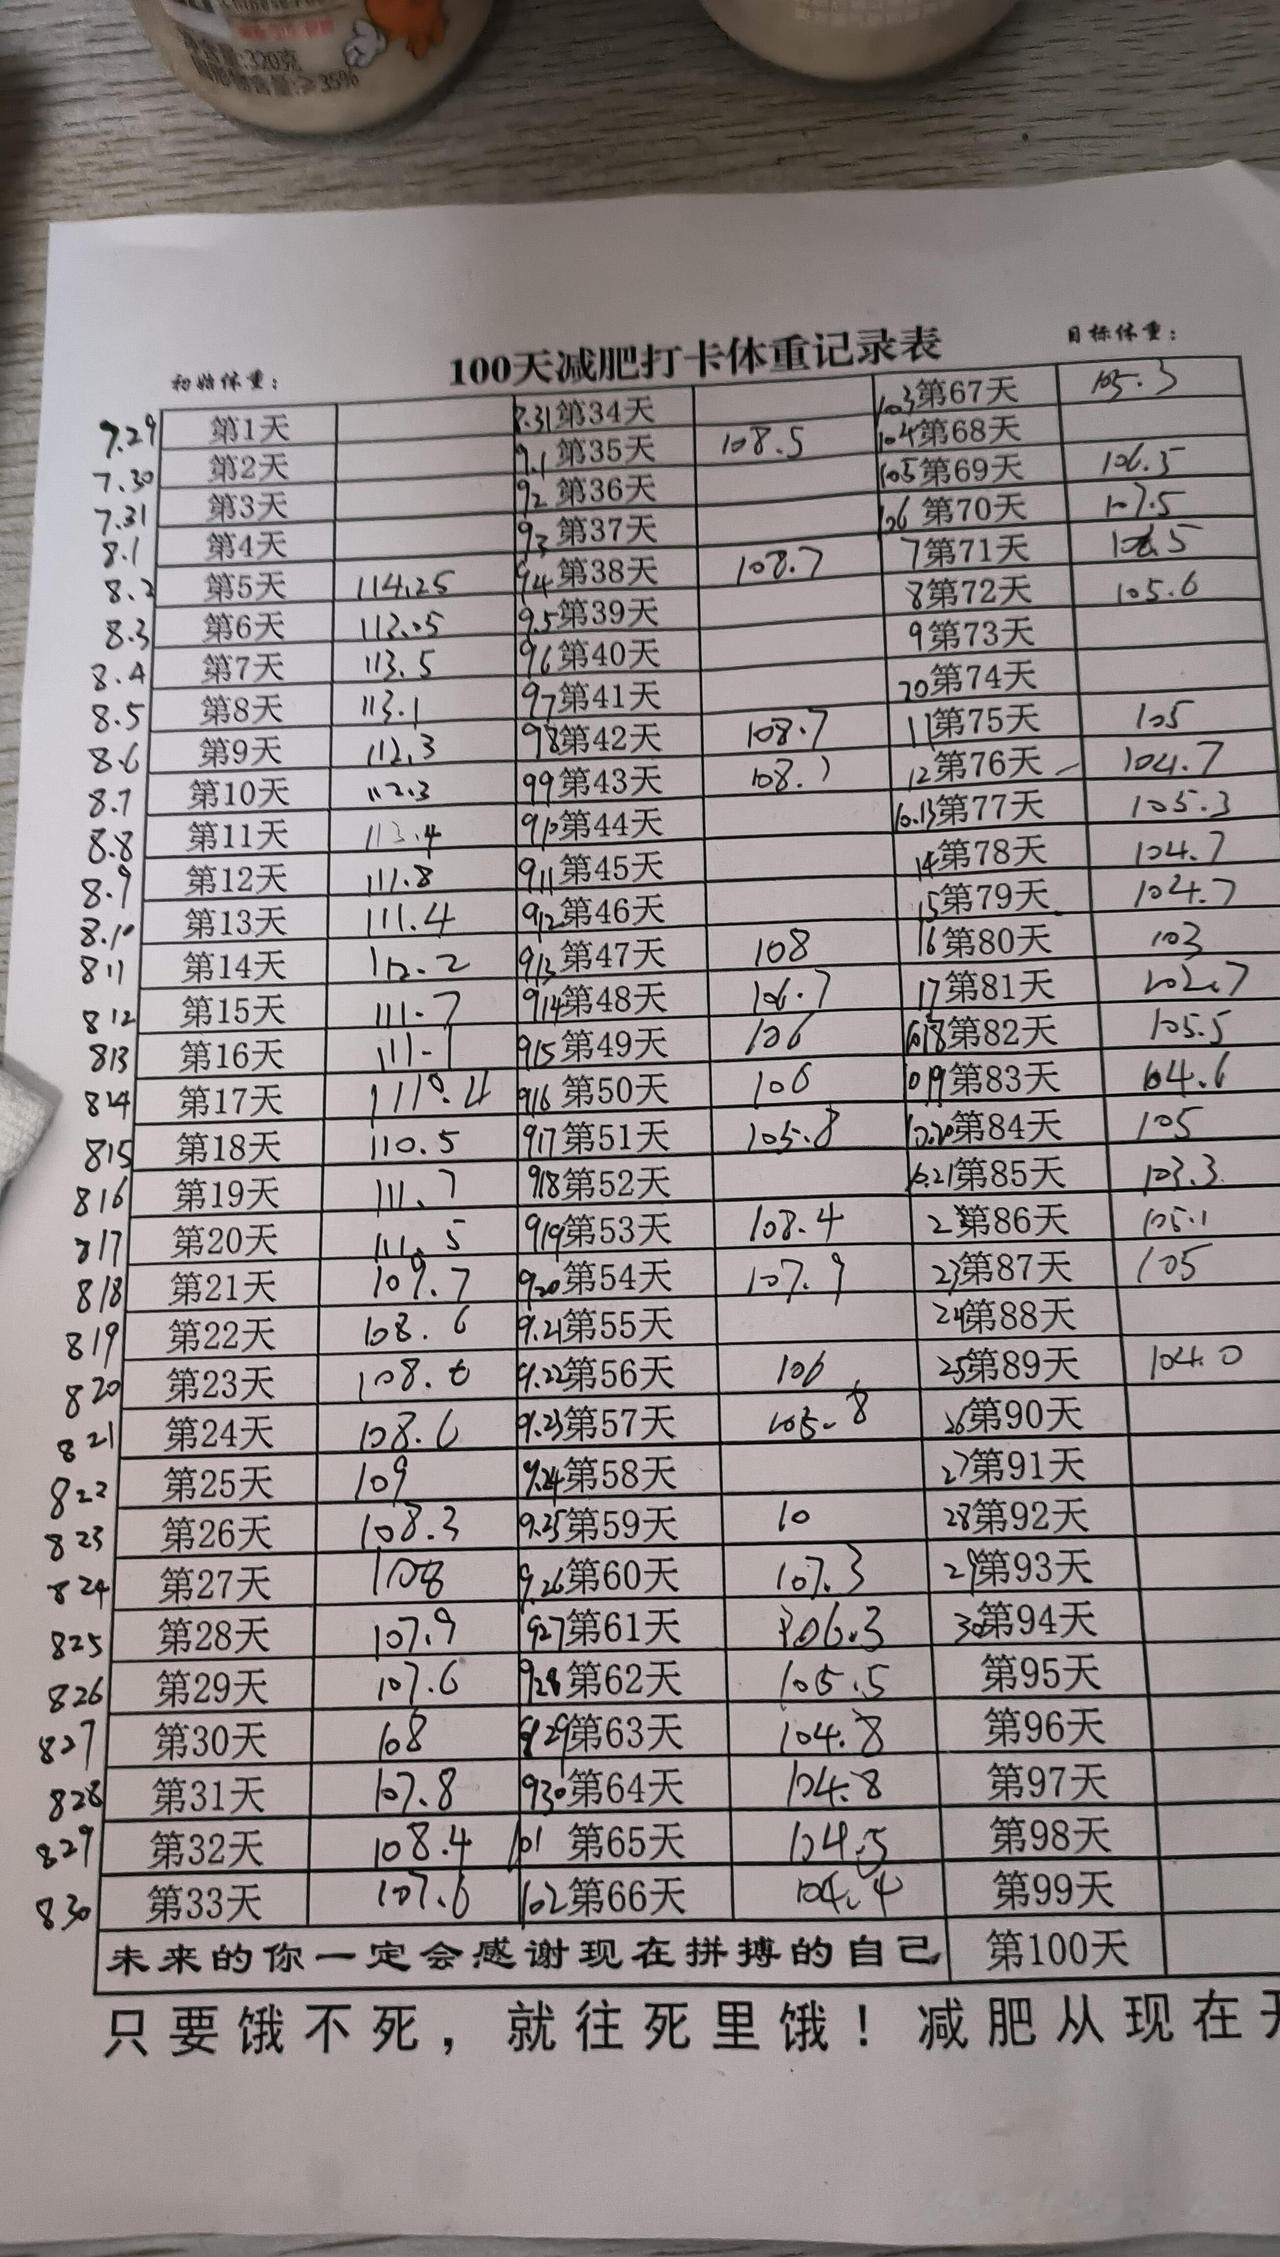 净含量:320克
≥35%
初始体重：
100天减肥打卡体重记录表
目标体重：
7.29 第1天 8.31 第34天 103 第67天 105.3
7.30 第2天 9.1 第35天 108.5 104 第68天
7.31 第3天 92 第36天 105 第69天 106.5
8.1 第4天 93 第37天 106 第70天 107.5
8.2 第5天 114.25 94 第38天 108.7 7 第71天
8.3 第6天 9.5 第39天 8 第72天 105.6
8.4 第7天 113.5 96 第40天 9 第73天
8.5 第8天 113.1 97 第41天 第74天
8.6 第9天 112.3 98 第42天 108.7 11 第75天 105
8.7 第10天 112.3 99 第43天 12 第76天 104.7
8.8 第11天 113.4 910 第44天 10.13 第77天 105.3
8.9 第12天 111.8 911 第45天 14 第78天 104.7
8.10 第13天 111.4 912 第46天 15 第79天 104.7
811 第14天 112.2 913 第47天 108 16 第80天 103
812 第15天 111.7 914 第48天 106.7 17 第81天 102.7
813 第16天 111.1 915 第49天 106 1018 第82天 105.5
814 第17天 916 第50天 106 1019 第83天 104.6
815 第18天 110.5 917 第51天 105.8 10.20 第84天 105
816 第19天 111.7 918 第52天 10.21 第85天 103.3
817 第20天 111.5 919 第53天 108.4 第86天 105.1
818 第21天 109.7 9.20 第54天 107.9 23 第87天 105
819 第22天 108.6 9.21 第55天 24 第88天
820 第23天 9.22 第56天 106 25 第89天 104.0
821 第24天 108.6 9.23 第57天 105.8 26 第90天
822 第25天 109 9.24 第58天 27 第91天
823 第26天 108.3 9.25 第59天 10 28 第92天
824 第27天 108 9.26 第60天 107.3 29 第93天
825 第28天 107.9 927 第61天 106.3 30 第94天
826 第29天 107.6 928 第62天 105.5 第95天
827 第30天 108 929 第63天 104.8 第96天
828 第31天 107.8 930 第64天 104.8 第97天
829 第32天 108.4 101 第65天 104.5 第98天
830 第33天 107.6 102 第66天 104.4 第99天
未来的你一定会感谢现在拼搏的自己 第100天
只要饿不死，就往死里饿！减肥从现在